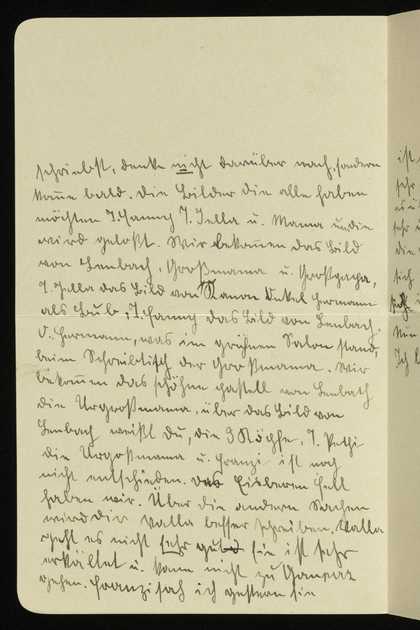 schriebst, denke nicht darüber nach, sondern
kom̅e bald. Die Bilder die alle haben
möchten T. Fanny T. Jella u. Mama u. die
wird gelost. Wir bekom̅en das Bild
von Lenbach, Großmama u. Großpapa,
T. Jella das Bild von Kanon Onkel Hermann
als Bub, T. Fanny das Bild von Lenbach,
O. Hermann, was im grühnen Salon stand,
beim Schreibtisch der Großmama. Wir
bekom̅en das schöhne Pastell von Lenbach
die Urgroßmama, über das Bild von
Lenbach weißt Du, die 3 Köpfe, T. Pepi
die Urgroßmama u. Franzi ist noch
nicht entschieden. Das Eisbären Fell
haben wir. Über die andern Sachen
wird dir Calla besser schreiben. Calla
geht es nicht sehr gut sie ist sehr
erkältet u. kann nicht zu
gehen. Franzi sah ich gestern sie